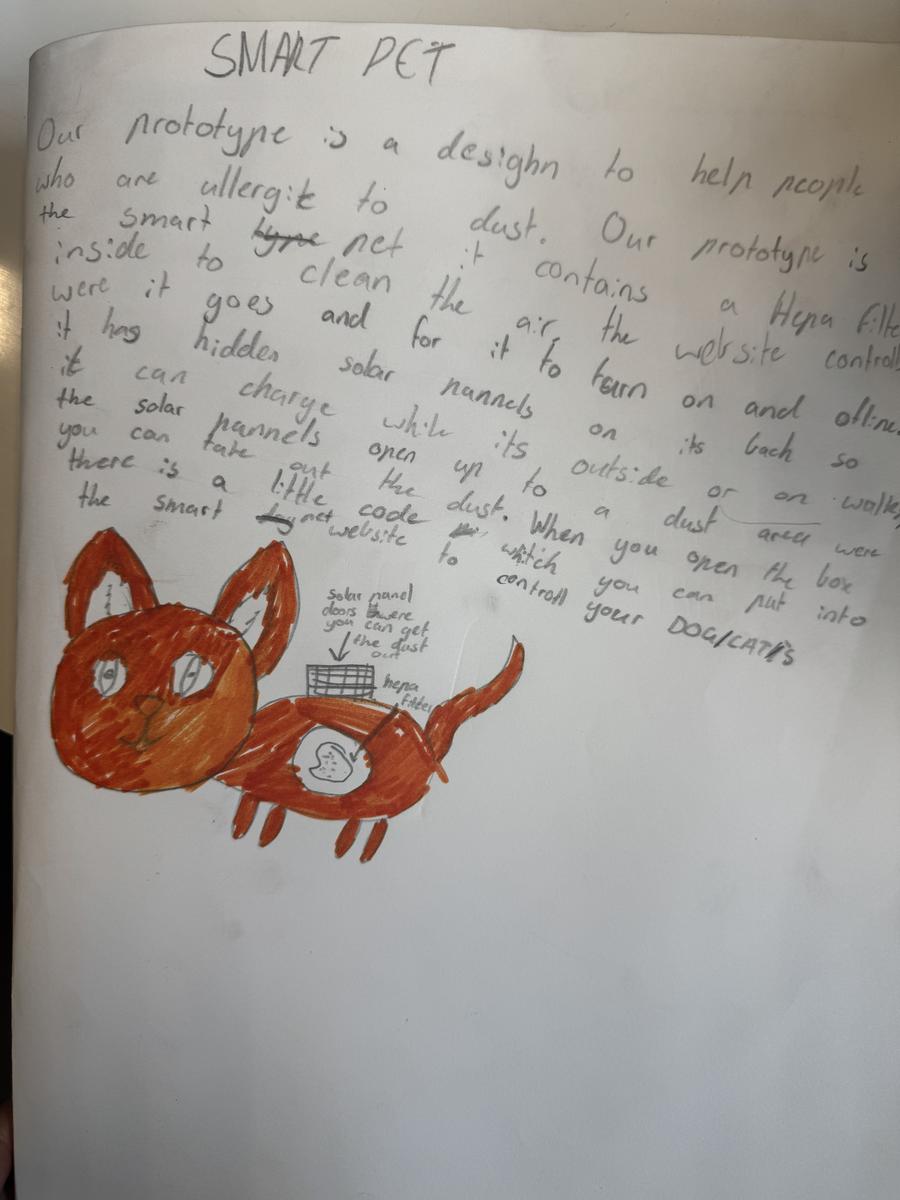 SMART PET
Our prototype is a desighn to help people
who are allergit to dust. Our prototype is
the smart pet it contains a Hepa filte
inside to clean the air, the website controll
were it goes and for it to turn on and ofline.
it has hidden solar pannels on its back so
it can charge while its outside or on walks,
the solar pannels open up to a dust area were
you can take out the dust. When you open the box
there is a little code which you can put into
the smart pet website to controll your DOG/CAT/S
solar panel
doors were
you can get
the dust
out
hepa
filter